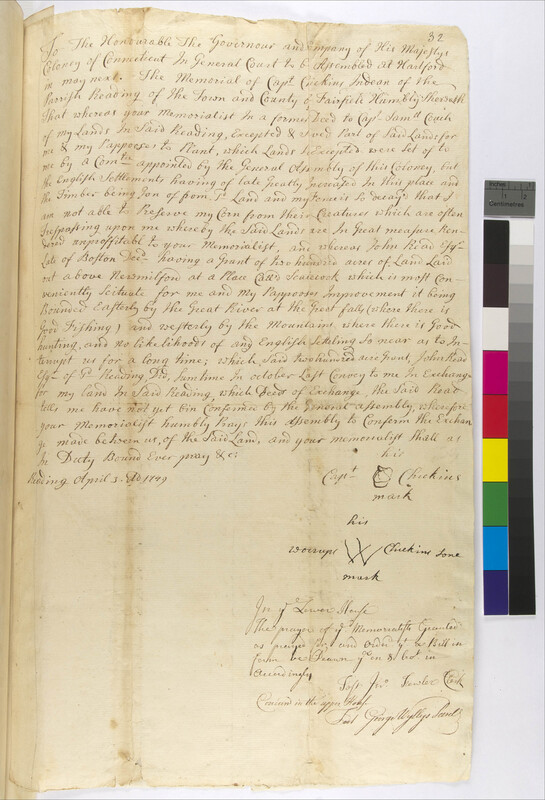 32
To The Honourable The Governour and Company of His Majestys
Coloney of Connecticut In General Court to be Assembled at Hartford
in may next. The Memorial of Capt Chickins Indean of the
Parrish Reading of the Town and County of Fairfield Humbly Sheweth
That whereas your Memorialist In a former Deed to Capt Samll Couch
of my Lands In Said Reading, Excepted & Saved Part of Said Lands for
me & my Pappooses to Plant, which Lands So Excepted were Set of to
me by a Comtee appointed by the General Assembly of this Coloney, but
the English Settlements having of late greatly Increased In this place and
the Timber being gon of from sd Land and my fence is So decayd that I
am not able to Preserve my Corn from their Creatures which are often
Trespassing upon me whereby the Said Lands are In Great measure Ren-
dered unproffitable to your Memorialist, and whereas John Read Esqr
Late of Boston Decd having a Grant of two hundred acres of Land Laid
out above Newmilfon at a Place Calld Scaticook which is most Con-
veniently Scituate for me and my Pappooses Improvement it being
Bounded Easterly by the Great River at the Great falls (where there is
Good Fishing) and westerly by the Mountains where there is Good
hunting, and no likelihoods of any English Setteling So near as to In-
terrupt us for a long time; which Said two hundred acre Grant, John Read
Esqr of sd Reading Did, Sumtime In october Last Convey to me In Exchange
for my land In Said Reading, which Deeds of Exchange, the Said Read
tells me have not yet bin Confermed by the General Assembly, wherefore
your Memorialist humbly Prays this Assembly to Conferm the Exchan
ge made between us, of the Said Land, and your memorialist Shall as
In Duty Bound Ever pray &c:
Reading April 3. AD 1749
his
Capt Chickins
mark
his
Chickins Sone
mark
In ye Lower House
The prayer of ye Memorialists Granted
as prayed for and Orderd yt a Bill in
form be Drawn &c in
Accordingly
Test Jno Fowler Clerk
Concurd in the upper House
Test George Wyllys Secret
Inches
1
2
Centimetres